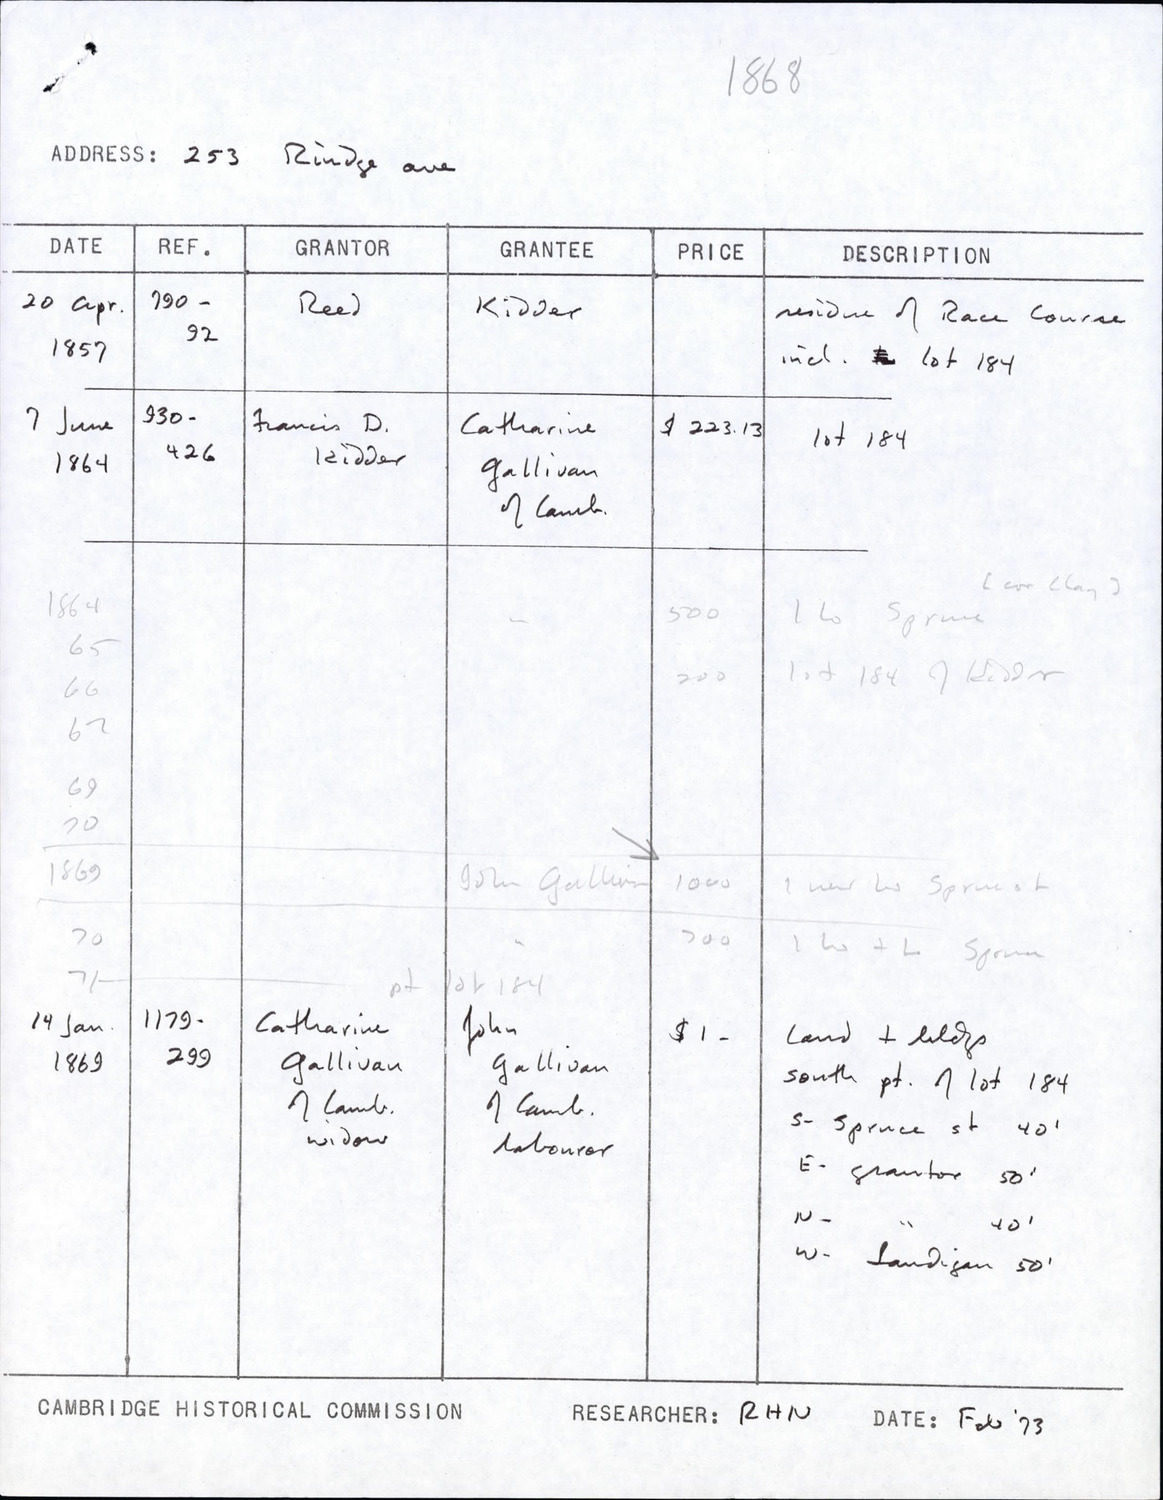 1868
ADDRESS: 253 Rindge ave
DATE REF. GRANTOR GRANTEE PRICE DESCRIPTION
20 Apr. 790- Reed Kidder residue of Race Course
1857 92 incl. lot 184
7 June 930- Francis D. Catharine $ 223.13 lot 184
1864 426 Kidder Gallivan
of Camb.
(cor Clay)
1864 " 500 1 ho Spruce
65
66 200 lot 184 of Kidder
67
69
70
1869 John Gallivan 1000 1 new ho Spruce st
70 " 700 1 ho + L Spruce
71 pt lot 184
14 Jan. 1179- Catharine John $ 1- Land + bldgs
1869 299 Gallivan Gallivan south pt. of lot 184
of Camb. of Camb. S- Spruce st 40'
widow labourer E- grantor 50'
N- " 40'
W- 50'
CAMBRIDGE HISTORICAL COMMISSION RESEARCHER: RHN DATE: Feb '73